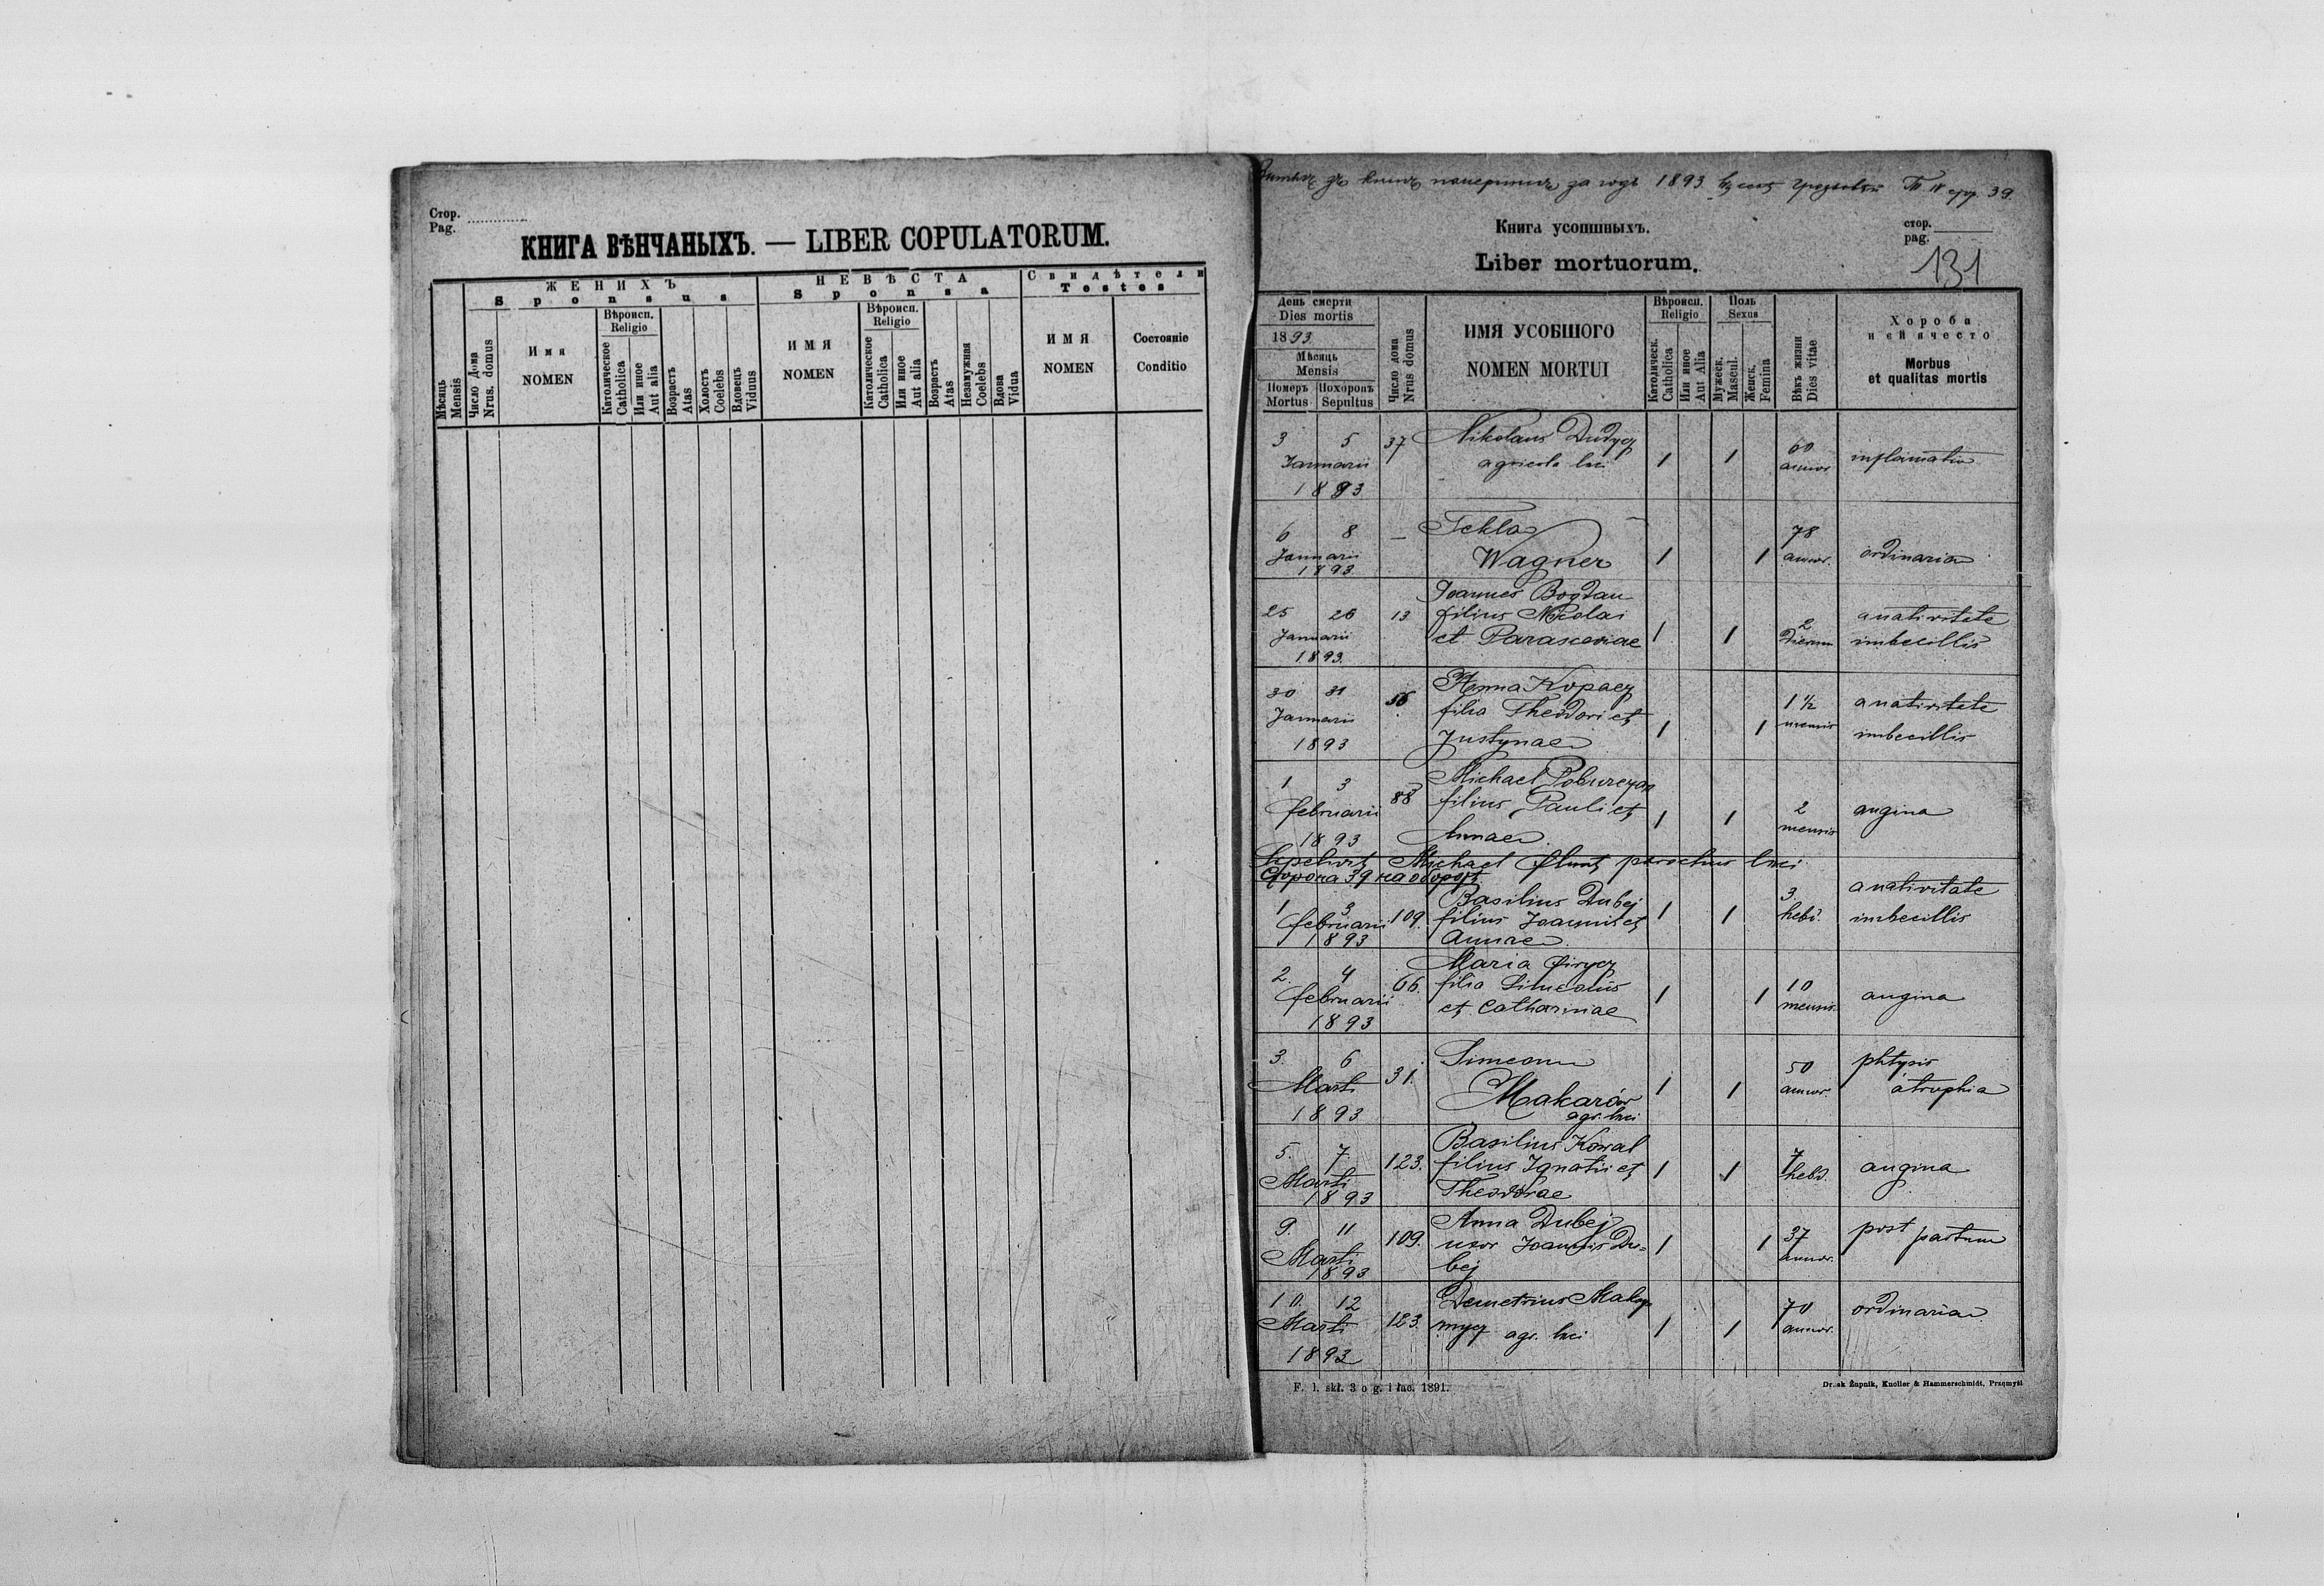 Стор.
Pag.
КНИГА ВѢНЧАНЫХЪ. — LIBER COPULATORUM.
Мѣсяць
Mensis
Число Дома
Nrus. domus
ЖЕНИХЪ
Sponsus
Имя
NOMEN
Вѣроисп.
Religio
Католическое
Catholica
Или иное
Aut alia
Возрастъ
Atas
Холостъ
Coelebs
Вдовецъ
Viduus
НЕВѢСТА
Sponsa
ИМЯ
NOMEN
Вѣроисп.
Religio
Католическое
Catholica
Или иное
Aut alia
Возрастъ
Atas
Незамужная
Coelebs
Вдова
Vidua
Свидѣтели
Testes
ИМЯ
NOMEN
Состояніе
Conditio
за годъ 1893 39.
Книга усопшныхъ.
Liber mortuorum.
стор.
pag.
131
День смерти
Dies mortis
1893.
Мѣсяць
Mensis
Померъ
Mortus
Похоронъ
Sepultus
Число дома
Nrus domus
ИМЯ УСОБШОГО
NOMEN MORTUI
Вѣроисп.
Religio
Католическ.
Catholica
Или иное
Aut Alia
Полъ
Sexus
Мужеск.
Mascul.
Женск.
Femina
Вѣкъ жизни
Dies vitae
Хороба
Morbus
et qualitas mortis
3 5 37 Nikolaus Dudycz
Januarii agricola loci 1 1 60 annor. inflamatio
1893
6 8 — Tekla
Januarii Wagner 1 1 78 annor. ordinaria
1893
Joannes Bogdan
25 26 13 filius Nicolai a nativitate
Januarii et Parasceviae 1 1 2 dierum imbecillis
1893.
30 31 56 Anna Kopacz
Januarii filia Theodori et 1 1 1 1/2 mensis a nativitate
1893 Justynae imbecillis
1 3 88 Michael
Februarii filius Pauli et 1 1 2 mensis angina
1893 Annae
Sepelivit Michael parochus loci
Сторона 39 на оборотѣ
1 3 109. Basilius Dubej 3. a nativitate
februarii filius Joannis et 1 1 hebd. imbecillis
1893 Annae
2. 4 66. Maria
februarii filia Simeonis 1 1 10 mensis. angina
1893 et Catharinae
3. 6 31. Simeon 50 phtysis
Marti Makarów 1 1 annor. atrophia
1893 agr. loci
5. 7. 123. Basilius Kowal
Marti filius Ignatii et 1 1 7 hebd. angina
1893 Theodorae
9. 11 109. Anna Dubej
Marti uxor Joannis Du= 1 1 37 annor. post partum
1893 bej
10. 12 123. Demetrius
Marti agr. loci 1 1 70 annor. ordinaria
1893
F. 1. skł. 3 o g. i łac. 1891.
Żupnik, Knoller & Hammerschmidt,